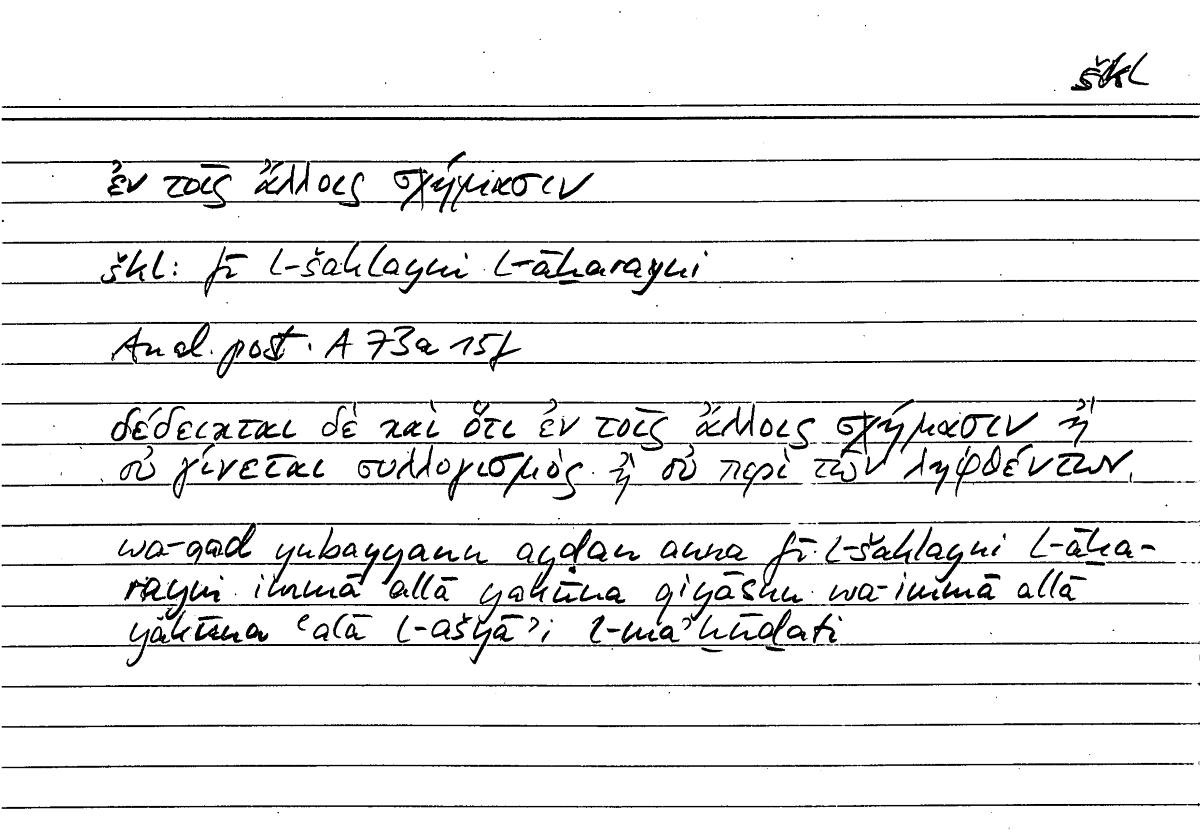 škl
ἐν τοῖς ἄλλοις σχήμασιν
škl: fī l-šaklayni l-āḫarayni
Anal. post. A 73a 15f
δέδεικται δὲ καὶ ὅτι ἐν τοῖς ἄλλοις σχήμασιν ἢ
οὐ γίνεται συλλογισμὸς ἢ οὐ περὶ τῶν ληφθέντων.
wa-qad yubayyanu ayḍan anna fī l-šaklayni l-āḫa-
rayni immā allā yakūna qiyāsun wa-immā allā
yakūna ʿalā l-ašyāʾi l-maʾḫūḏati